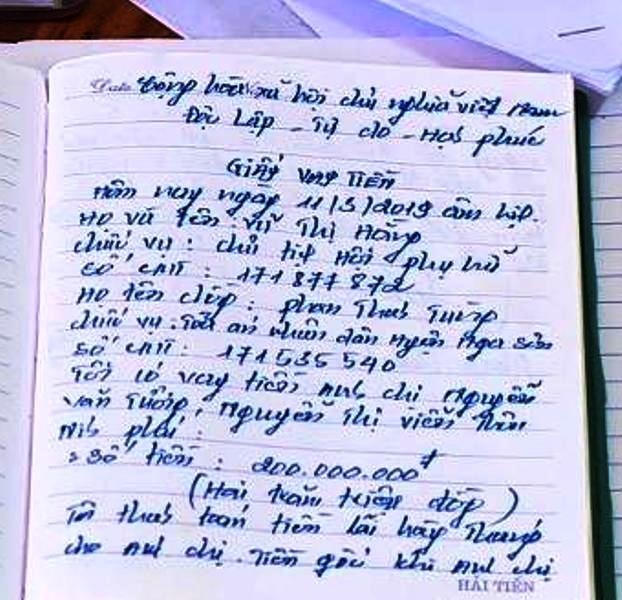 Cộng hòa xã hội chủ nghĩa việt nam
Độc lập - Tự do - Hạnh phúc
Giấy vay Tiền
Hôm nay ngày 11/5/2019 âm lịch.
Họ và tên: Vũ Thị Hằng
chức vụ: chủ tịch Hội phụ nữ
Số cmt: 171877872
Họ tên chồng: phan Thanh Tùng
chức vụ: Toà án nhân dân Huyện Nga Sơn
Số cmt: 171535540
Tôi có vay tiền anh chị Nguyễn
văn Tưởng, Nguyễn Thị viễn Thôn
phái:
Số tiền: 200.000.000đ
(Hai trăm triệu đồng)
Tôi thanh toán tiền lãi hàng Tháng
cho anh chị. Tiền gốc khi anh chị
HẢI TIẾN